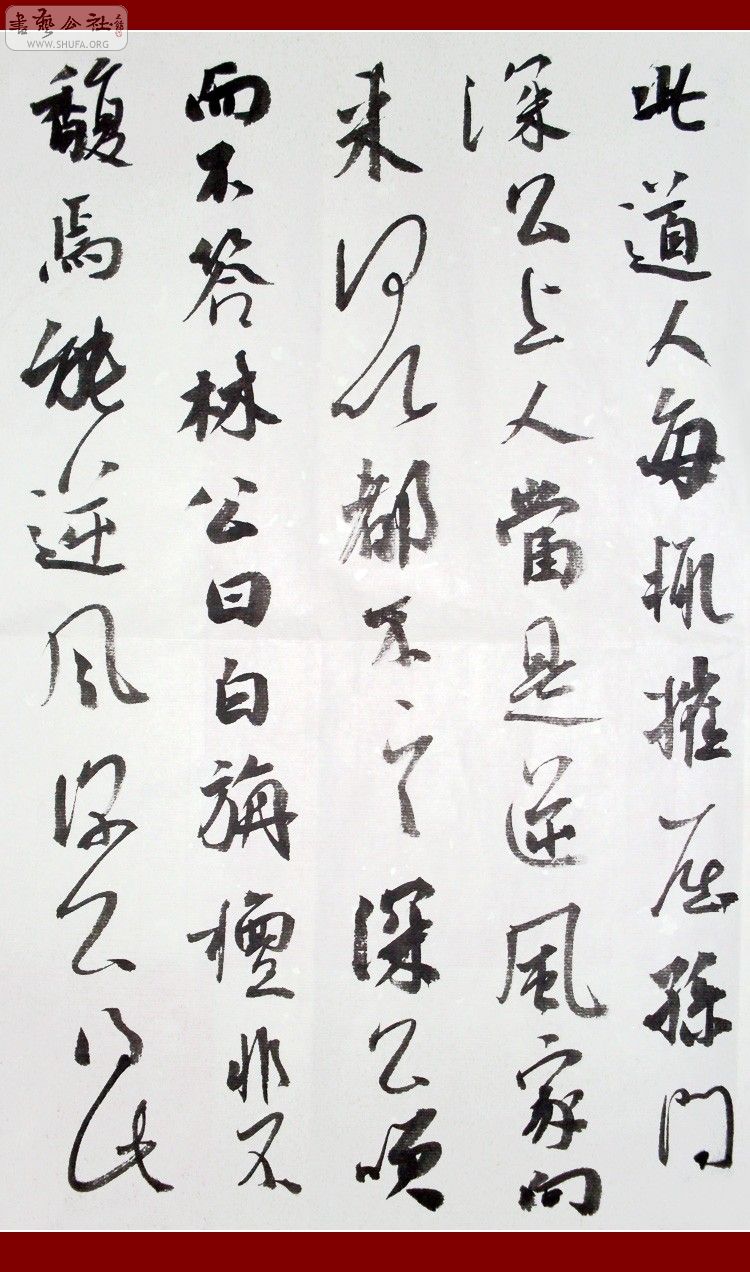 書藝公社
WWW.SHUFA.ORG
此道人每輒摧屈孫問
深公上人當是逆風家向
來何以都不言深公咲
而不答林公曰白旃檀非不
馥焉能逆風深公得此